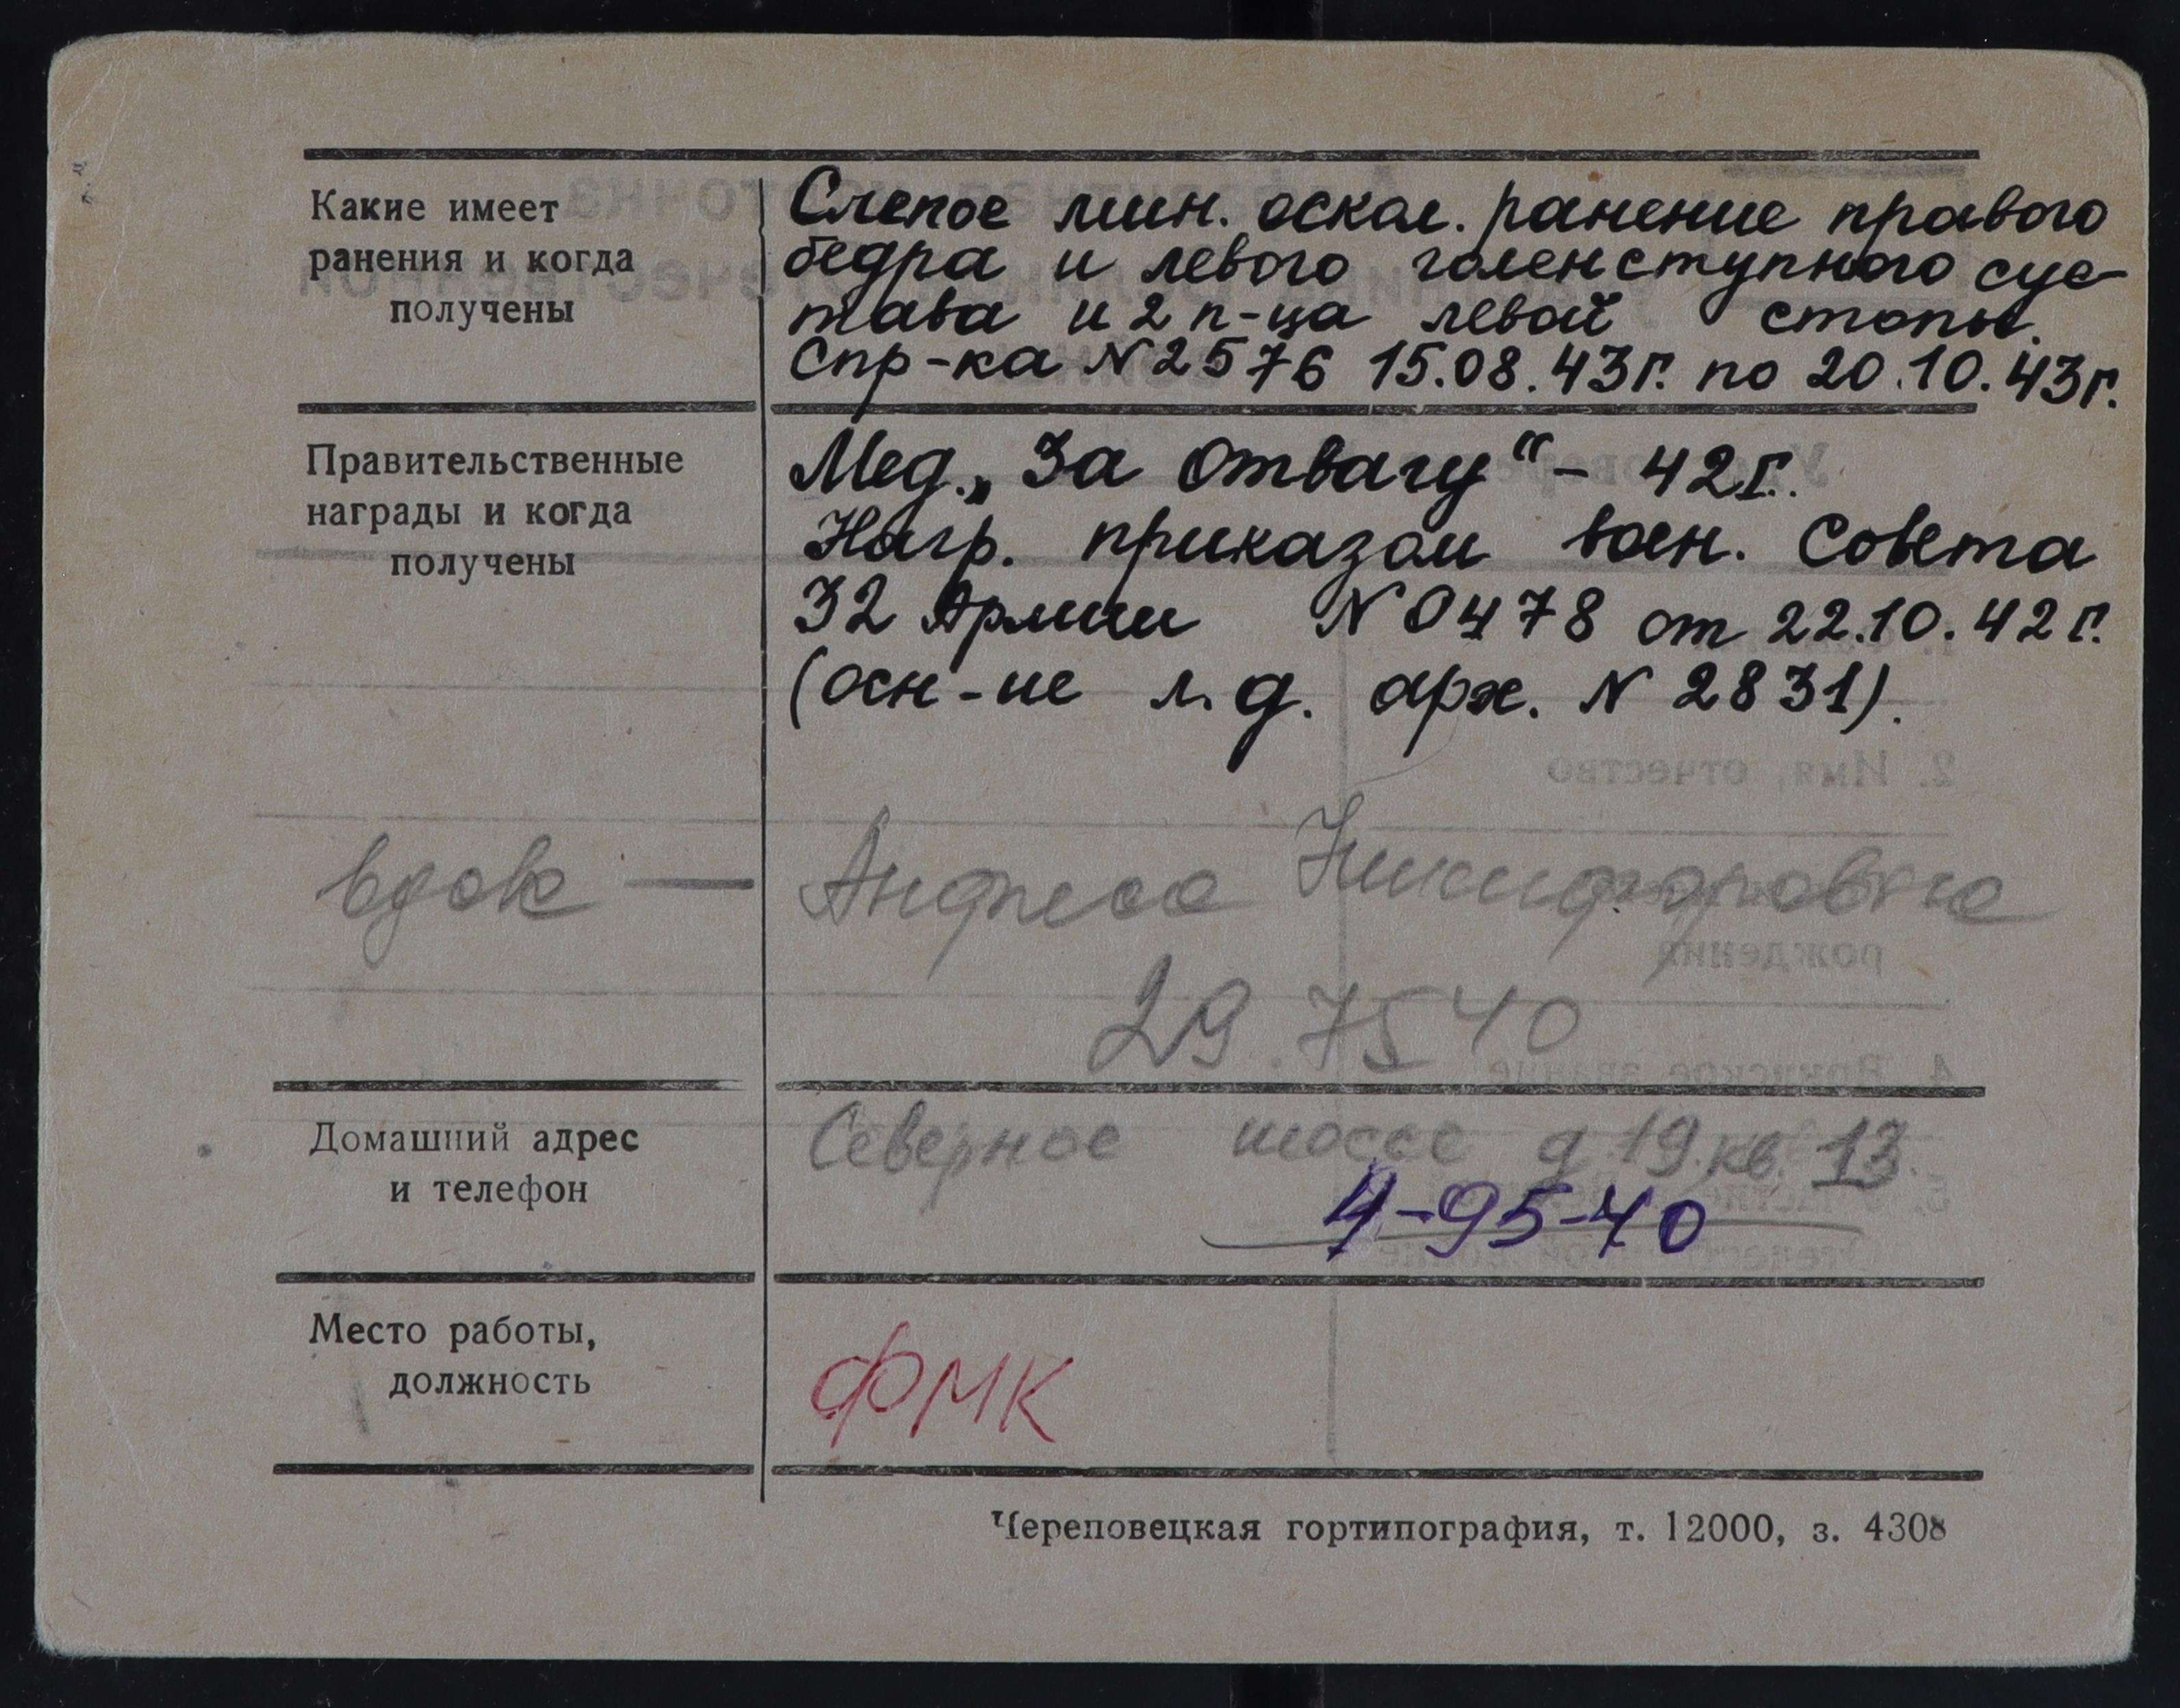 Какие имеет
ранения и когда
получены
Слепое мин. оскол. ранение правого
бедра и левого голенступного сус-
тава и 2 п-ца левой стопы.
Спр-ка N 2576 15.08.43г. по 20.10.43г.
Правительственные
награды и когда
получены
Мед. „За Отвагу“ - 42г.
Нагр. приказом воен. Совета
32 Армии N 0478 от 22.10.42г.
(осн-ие л.д. арх. N 2831).
вдова — Никифоровна
29.7540
Домашний адрес
и телефон
Северное шоссе д 19.кв. 13.
4-95-40
Место работы,
должность
ФМК
Череповецкая гортипография, т. 12000, з. 4308